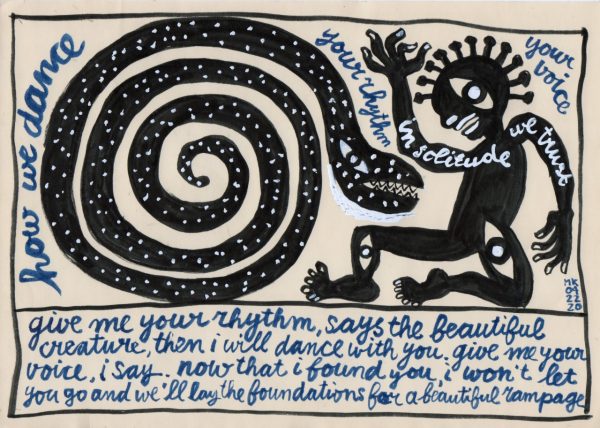 how we dance
your rhythm
your voice
in solitude
we trust
MK
04
22
20
give me your rhythm, says the beautiful
creature, then i will dance with you. give me your
voice, i say. now that i found you, i won't let
you go and we'll lay the foundations for a beautiful rampage